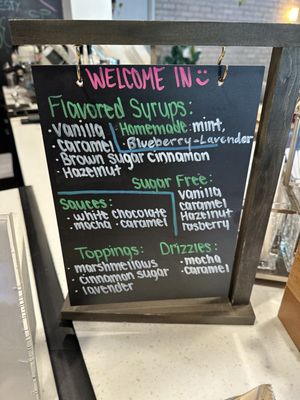 WELCOME IN
Flavored Syrups:
• Vanilla
Homemade: mint,
• Caramel
Blueberry-Lavender
• Brown Sugar Cinnamon
• Hazelnut
Sugar Free:
Vanilla
Caramel
Hazelnut
rasberry
Sauces:
• white chocolate
• mocha • caramel
Toppings:
• marshmellows
• cinnamon sugar
• lavender
Drizzles:
• mocha
• caramel